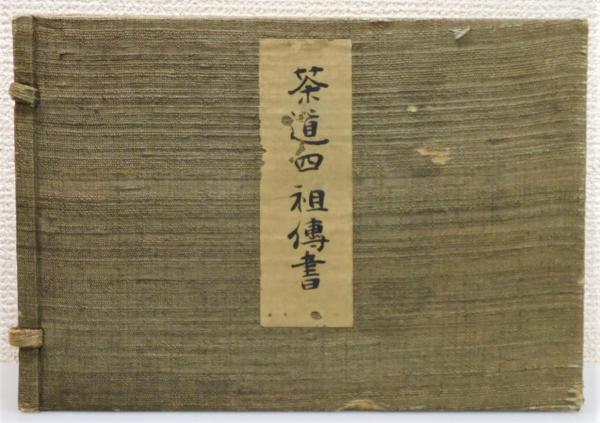 茶道四祖傳書